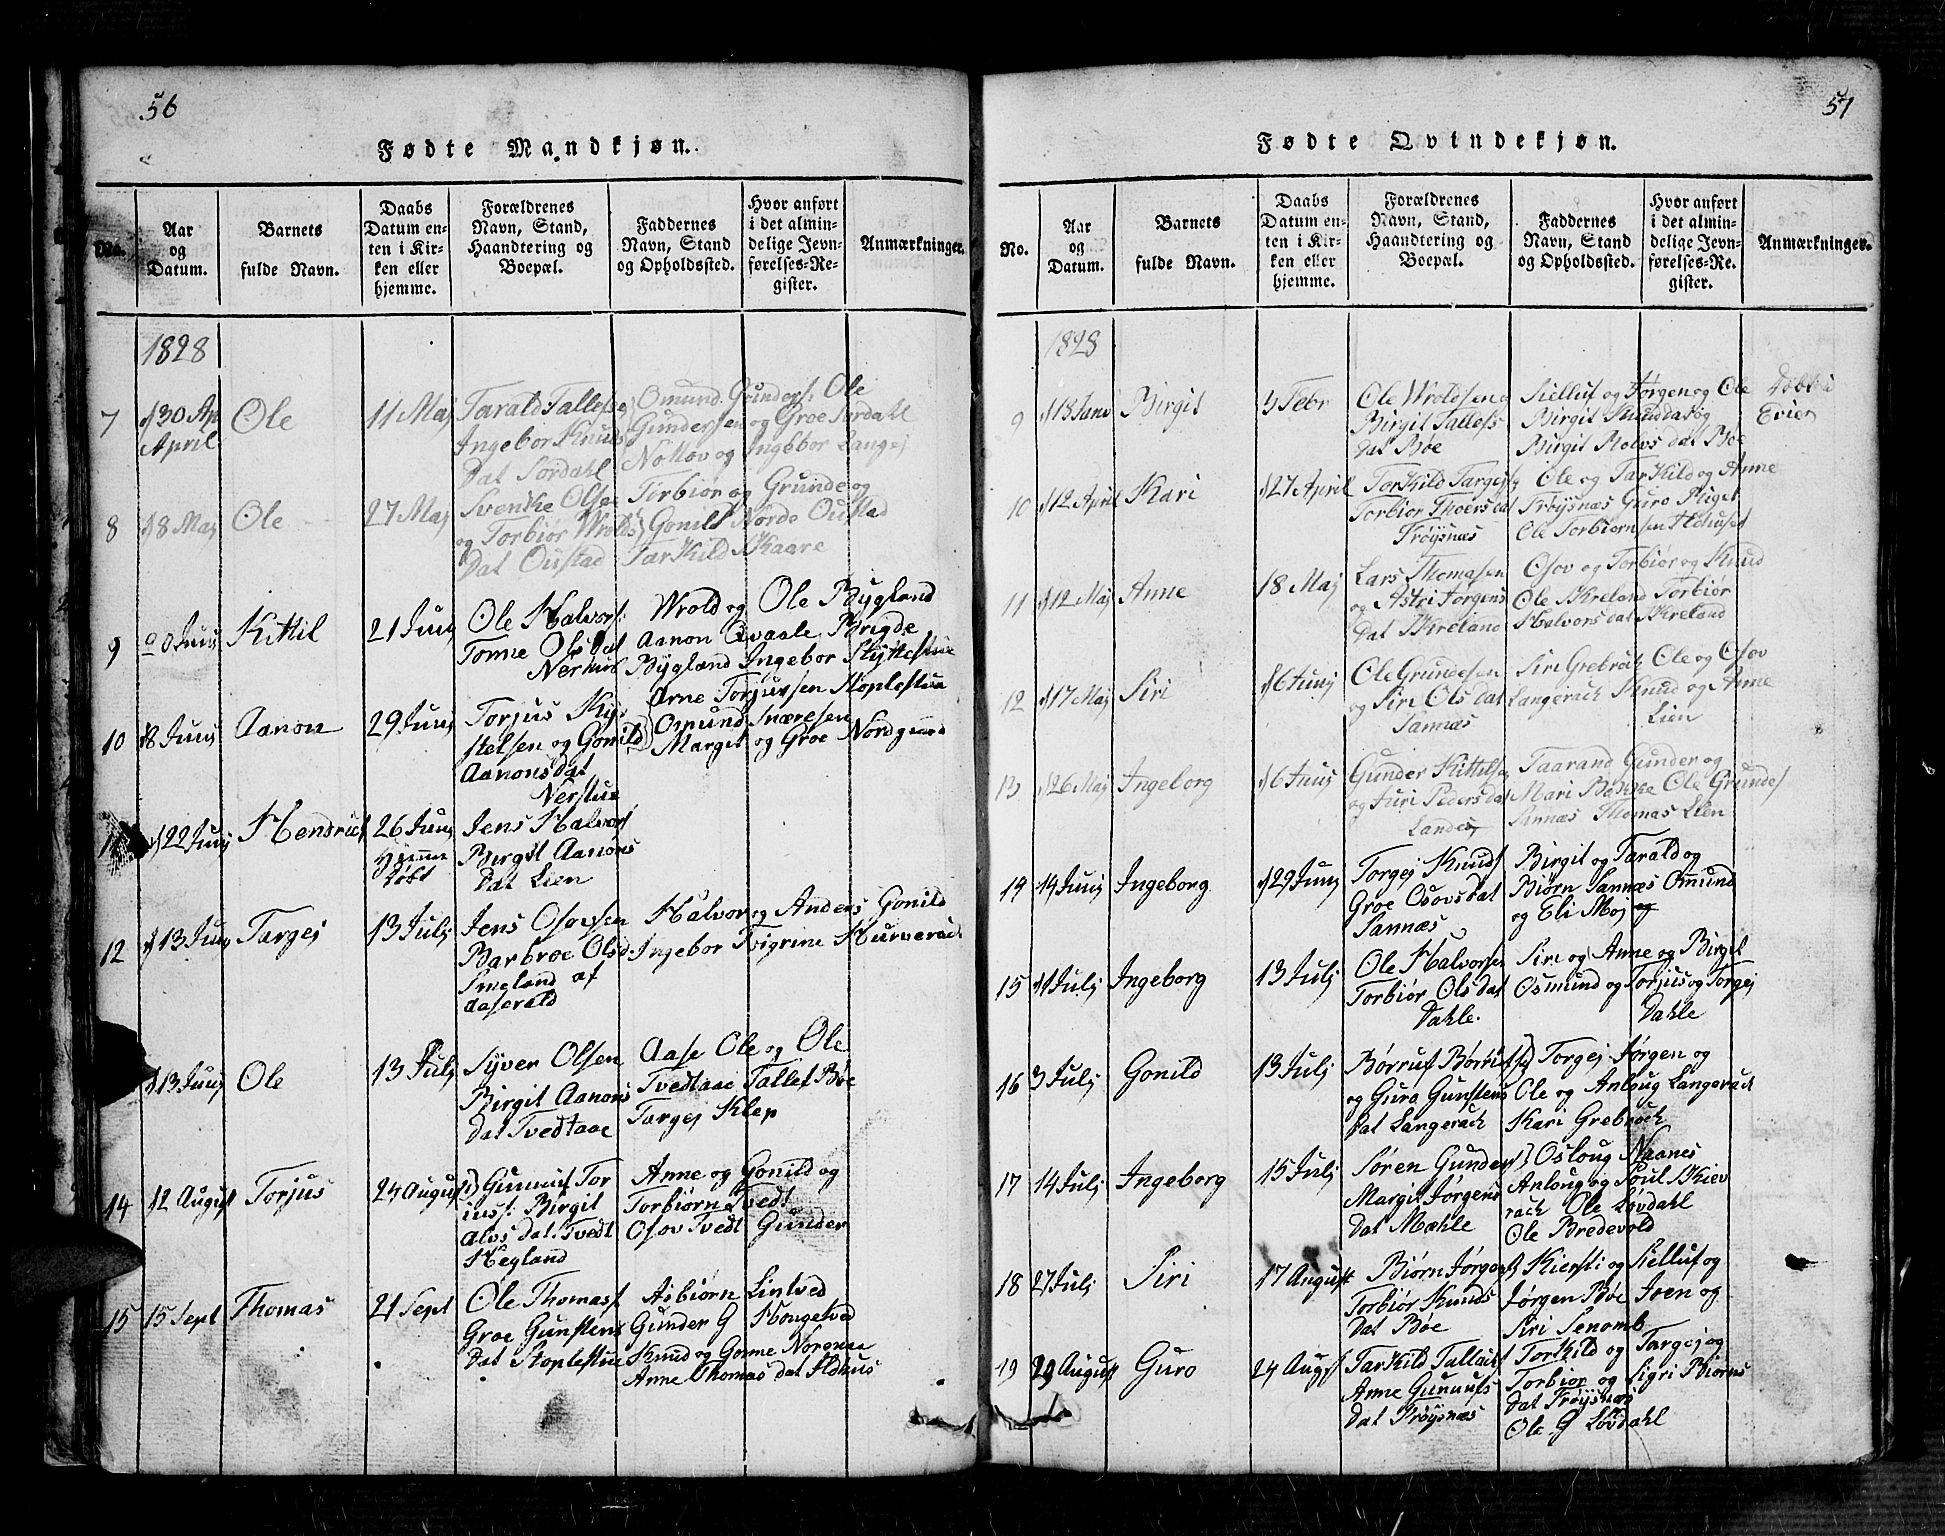 56
Fødte Mandkjøn.
No.
Aar og Datum.
Barnets fulde Navn.
Daabs Datum enten i Kirken eller hjemme.
Forældrenes Navn, Stand, Haandtering og Boepæl.
Faddernes Navn, Stand og Opholdssted.
Hvor anført i det almindelige Jevnførelses-Register.
Anmærkninger.
1828
7 d 30 Ap April Ole 11 Maj
Tarald Tallefs
Ingebor Knuds
Dat Sordahl
Omund Gunders: Ole
Gundersen og Groe Sordahl
og Ingebor Langej
8 d 8 Maj Ole 27 Maj
Svenke Olsen
og Torbiør Wrolds
Dat Oustad
Torbiør og Grunde og
Gonild Nordo Oustad
Tarkild Skaare
9 Juni Kittil 21 Juni
Ole Halvors:
Tonne Ols Dat
Wrold og Ole Bygland
Aanon Qvaale Brigde
Bygland Ingebor
10 d 8 Juni Aanon 29 Juni
Torjus Ky-
stelsen og Gonild
Aanons dat
Nerstue
Arne Torjussen Stoplestue
Omund Snaresen
Margit og Groe Nordgaard
d 22 Juni Hendrich 26 Juni
Hjemme
døbt
Jens Halvors
Birgit Aanons
Dat Lien
12 d 13 Juni Targej 13 Julj
Jens Osovsen
Barbroe Olsd:
Smeland af
Aaserald
Halvor og Anders Gonild
Ingebor
d 13 Juni Ole 13 Julj
Syver Olsen
Birgit Aanons
Dat Tvedtaae
Aase Ole og Ole
Tvedtaae Tallef Bøe
Targej Klep
14 12 August Torjus 24 August
Gunnuf Tor
ius: Birgit
Alvs Dat Tvedt
Hegland
Anne og Gonild og
Torbiørn Tvedt
Osov Tvedt Gunder
15 15 Sept Thomas 21 Sept
Ole Thomass
Groe Gunstens
Dat Stoplestue
Asbiørn Lintved
Gunder G Hongetved
Knud og Gonne
Anne Thomas dat
57
Fødte Qvindekjøn.
No.
Aar og Datum.
Barnets fulde Navn.
Daabs Datum enten i Kirken eller hjemme.
Forældrenes Navn, Stand, Haandtering og Boepæl.
Faddernes Navn, Stand og Opholdssted.
Hvor anført i det almindelige Jevnførelses-Register.
Anmærkninger.
1828
9 d 13 Janv Birgit 3 Febr
Ole Wroldsen
Birgit Tallefs
dat Bøe
Sielluf og Jørgen og Ole
Birgit Knuddat og
Birgit Rolvs dat Bøe
Døbt i
Evier
10 d 12 April Kari d 27 April
Torkild Targejs
Torbiør Thoers dat
Frøysnæs
Ole og Tarkild og Anne
Frøysnæs Guro
Ole Torbiørnsen
11 d 12 Maj Anne 18 Maj
Lars Thomasen
og Astri Jorgens
Dat Skreland
Osov og Torbiør og Knud
Ole Skreland Torbiør
Halvors dat Skreland
12 d 17 Maj Siri d 6 Junj
Ole Grundesen
og Siri Ols Dat
Sannæs
Siri Grebrock Ole og Osov
Langerack Knud og Anne
Lien
13 d 26 Maj Ingeborg d 6 Juni
Gunder Kittelsen
og Juri Peders dat
Landes
Taarand Gunder og
Mari Bakke Ole Grundes
Sannæs Thomas Lien
14 14 Junj Ingeborg d 29 Junj
Torgej Knuds
Groe Osovsdat
Sannæs
Birgit og Tarald og
Biørn Sannæs Omund
og Eli Moj og
15 d 1 Julj Ingeborg 13 Julj
Ole Halvorsen
Torbiør Ols dat
Dahle.
Siri og Anne og Birgit
Osmund og Torjus og Torgej
Dahle
16 3 Julj Gonild 13 Julj
Børruf
og Guro Gunstens
Dat Langerack
Torgej Jørgen og
Ole og Anloug Langerack
Kari Grebrock
17 14 Julj Ingeborg 15 Julj
Søren Gunders
Margit Jørgens
Dat Mæhle
Osloug Naanes
Anloug og Poul Skiev
rack Ole Løvdahl
Ole Bredevold
18 27 Julj Siri 17 August
Biørn Jørgens
Torbiør Knuds
Dat Bøe
Kiersti og Sielluf og
Jørgen Bøe Joen og
Siri Senomb
19 29 August Guro 24 Augs
Tarkild Tallacs
Anne Gunnufs
Dat Frøysnæs
Torkild og Targej og
Torbiør og Sigri Biørns
Dat Frøysnæs
Ole G Løvdahl